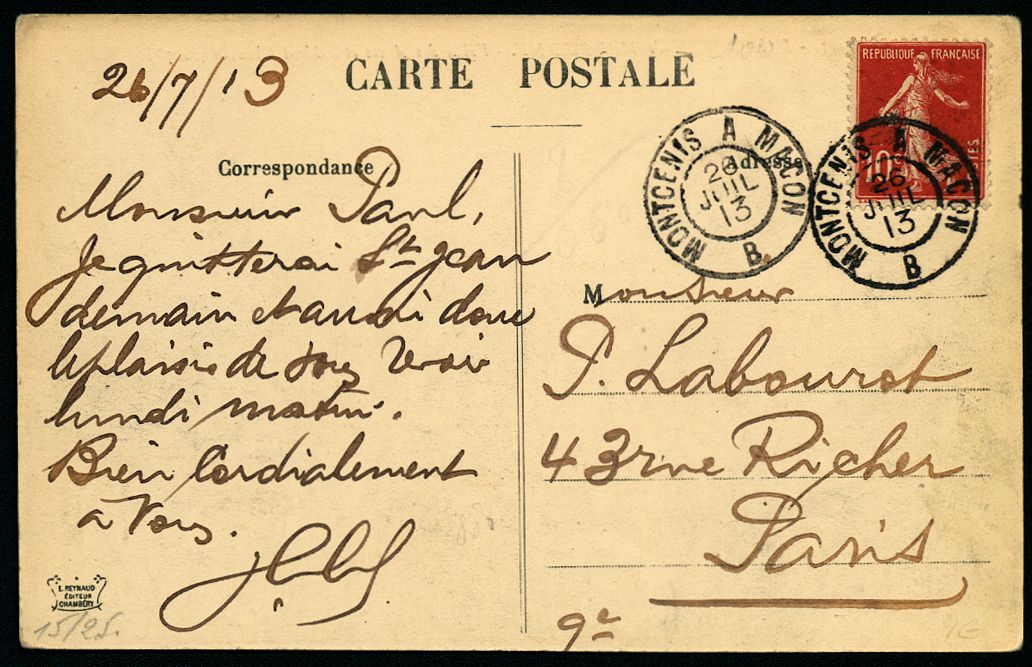 26/7/13
CARTE POSTALE
Correspondance
Adresse
REPUBLIQUE FRANÇAISE
10c
POSTES
MONTCENIS A MACON
26
JUIL
13
B
MONTCENIS A MACON
26
JUIL
13
B
Monsieur Paul,
Je quitterai St Jean
demain et aurai donc
le plaisir de vous voir
lundi matin.
Bien Cordialement
a Vous.
Monsieur
P. Labouret
43 rue Richer
Paris
9e
E. REYNAUD
ÉDITEUR
CHAMBÉRY
15/25.